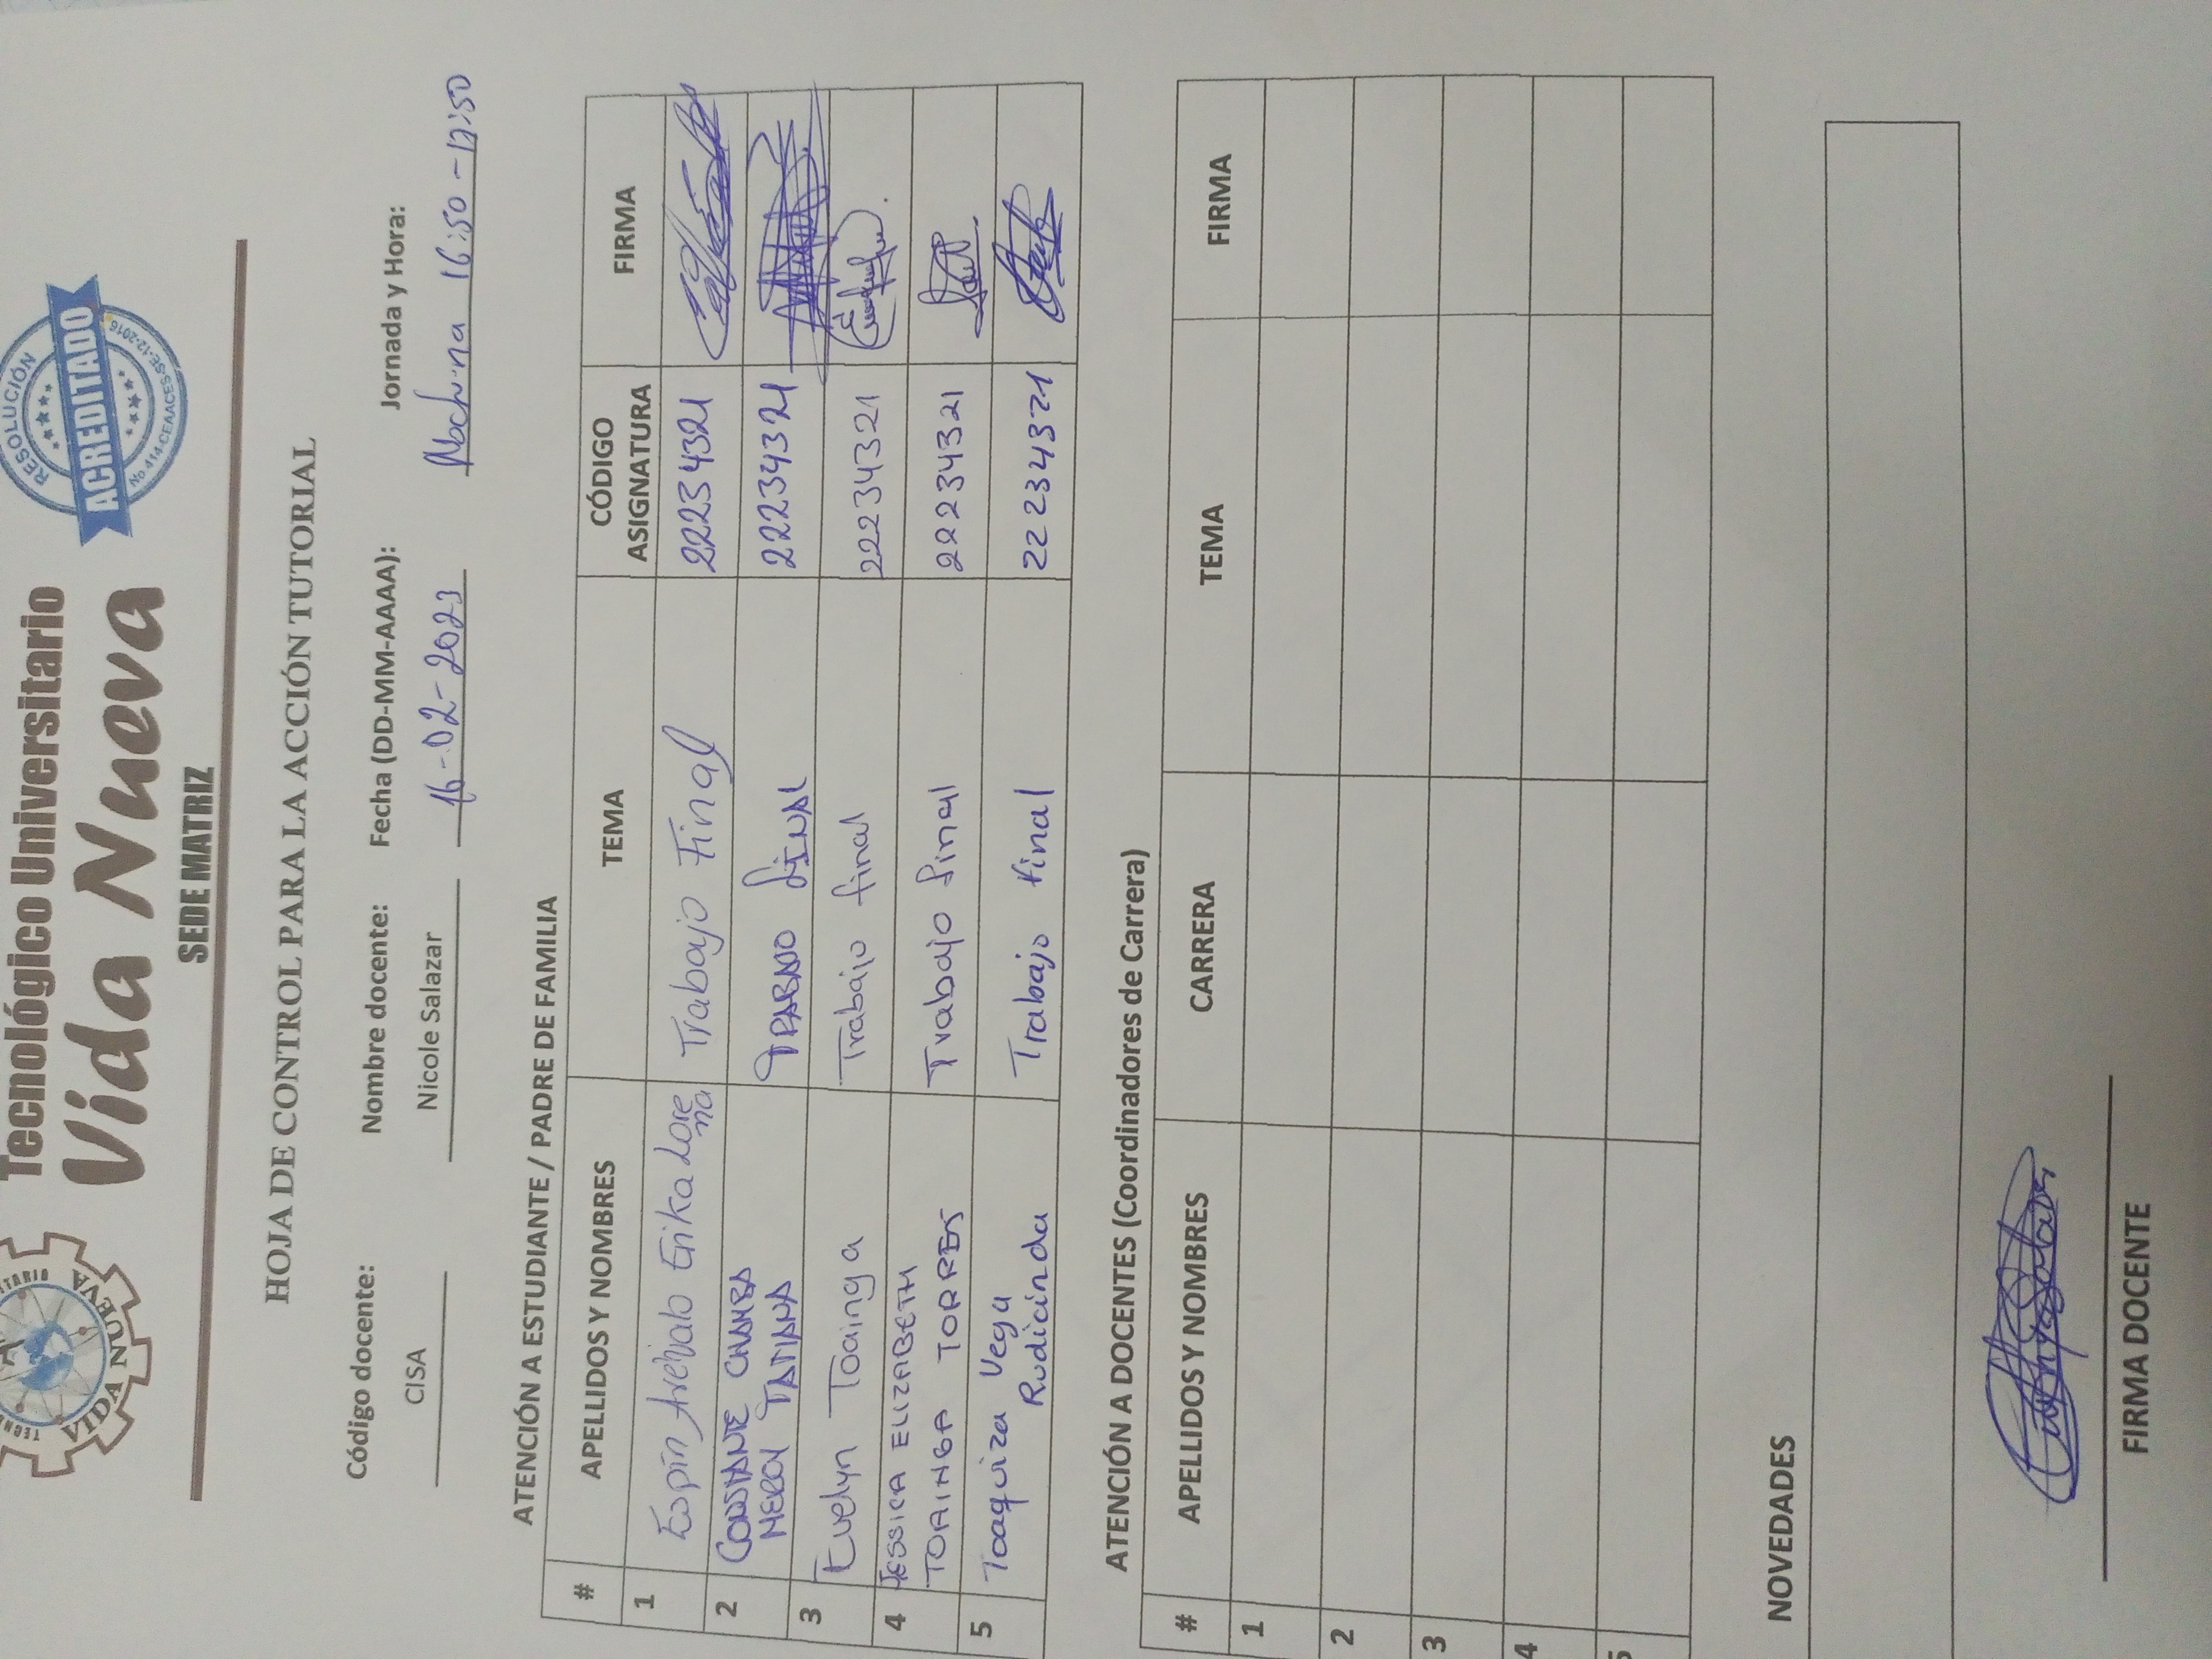 Tecnológico Universitario
Vida Nueva
SEDE MATRIZ
VIDA NUEVA
RESOLUCIÓN
ACREDITADO
No 414-CEAACES-SE-12-2016
HOJA DE CONTROL PARA LA ACCIÓN TUTORIAL
Código docente: Nombre docente: Fecha (DD-MM-AAAA): Jornada y Hora:
CISA Nicole Salazar 16-02-2023 Nocturna 16:50 - 17:50
ATENCIÓN A ESTUDIANTE / PADRE DE FAMILIA
# APELLIDOS Y NOMBRES TEMA CÓDIGO ASIGNATURA FIRMA
1 Espin Arevalo Erika Lorena Trabajo Final 22234321
2 CONSTANTE CHAMBA MERCY TATIANA TRABAJO FINAL 22234321
3 Evelyn Toainga Trabajo final 22234321
4 JESSICA ELIZABETH TOAINGA TORRES Trabajo final 22234321
5 Toaquiza Vega Rudicinda Trabajo final 22234321
ATENCIÓN A DOCENTES (Coordinadores de Carrera)
# APELLIDOS Y NOMBRES CARRERA TEMA FIRMA
1
2
3
4
5
NOVEDADES
FIRMA DOCENTE